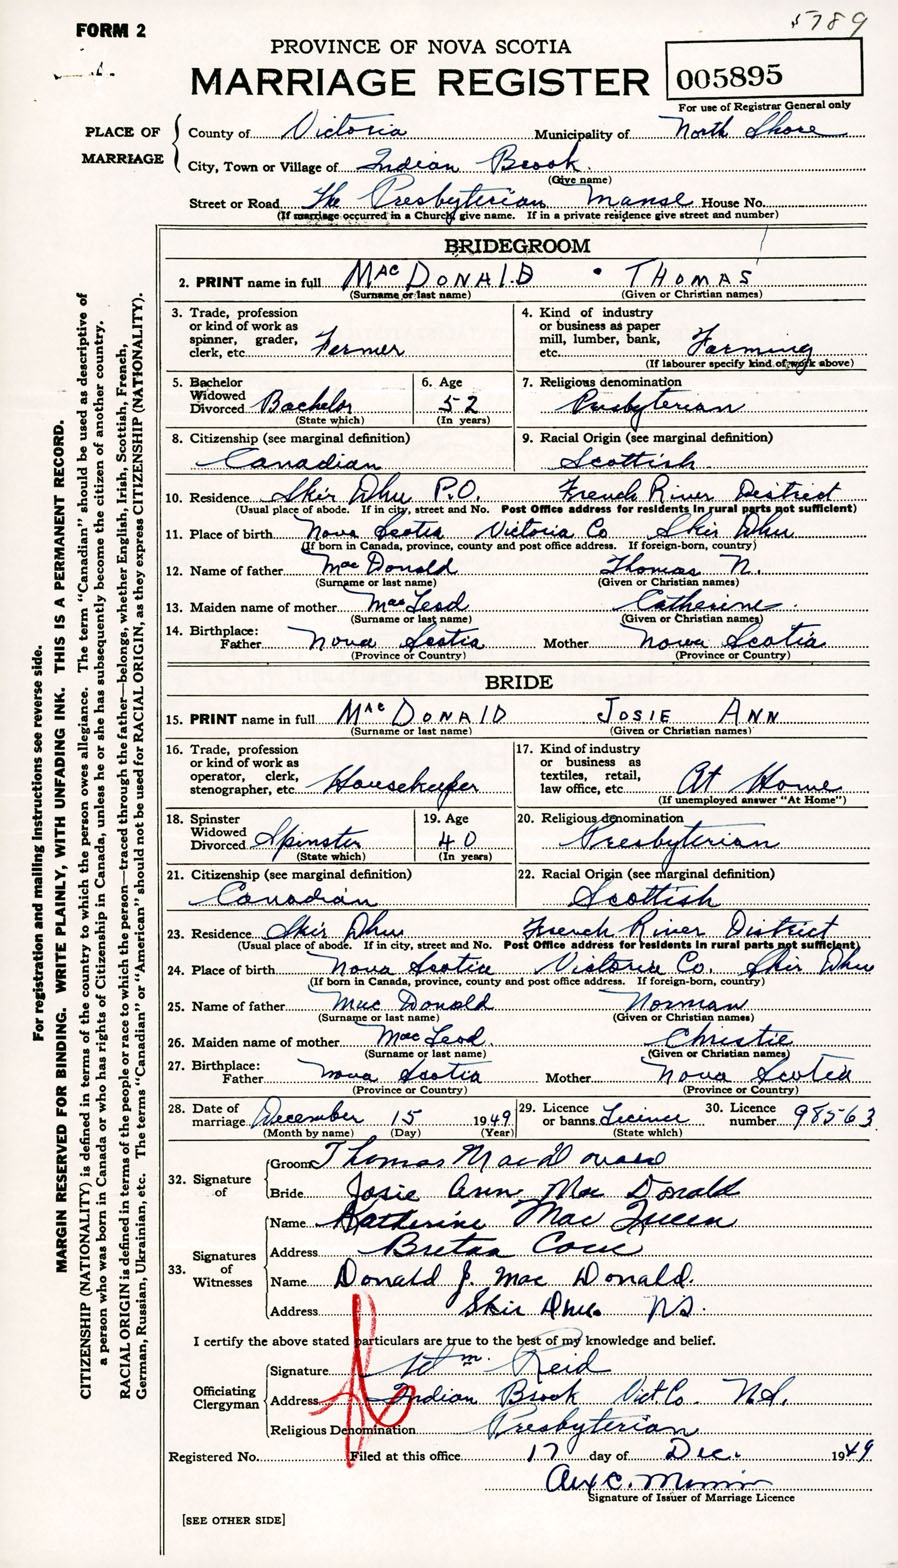 FORM 2
5789
PROVINCE OF NOVA SCOTIA
MARRIAGE REGISTER
005895
For use of Registrar General only
PLACE OF MARRIAGE
County of Victoria Municipality of North Shore
City, Town or Village of Indian Brook
(Give name)
Street or Road The Presbyterian Manse House No.
(If marriage occurred in a Church give name. If in a private residence give street and number)
BRIDEGROOM
2. PRINT name in full MacDONALD THOMAS
(Surname or last name) (Given or Christian names)
3. Trade, profession or kind of work as spinner, grader, clerk, etc. Farmer
4. Kind of industry or business as paper mill, lumber, bank, etc. Farming
(If labourer specify kind of work above)
5. Bachelor Widowed Divorced Bachelor
(State which)
6. Age 52
(In years)
7. Religious denomination
Presbyterian
8. Citizenship (see marginal definition)
Canadian
9. Racial Origin (see marginal definition)
Scottish
10. Residence Skir Dhu P.O. French River District
(Usual place of abode. If in city, street and No. Post Office address for residents in rural parts not sufficient)
11. Place of birth Nova Scotia Victoria Co Skir Dhu
(If born in Canada, province, county and post office address. If foreign-born, country)
12. Name of father MacDonald Thomas N.
(Surname or last name) (Given or Christian names)
13. Maiden name of mother MacLeod Catherine
(Surname or last name) (Given or Christian names)
14. Birthplace: Father Nova Scotia Mother Nova Scotia
(Province or Country) (Province or Country)
BRIDE
15. PRINT name in full MacDONALD JOSIE ANN
(Surname or last name) (Given or Christian names)
16. Trade, profession or kind of work as operator, clerk, stenographer, etc. Housekeeper
17. Kind of industry or business as textiles, retail, law office, etc. At Home
(If unemployed answer "At Home")
18. Spinster Widowed Divorced Spinster
(State which)
19. Age 40
(In years)
20. Religious denomination
Presbyterian
21. Citizenship (see marginal definition)
Canadian
22. Racial Origin (see marginal definition)
Scottish
23. Residence Skir Dhu French River District
(Usual place of abode. If in city, street and No. Post Office address for residents in rural parts not sufficient)
24. Place of birth Nova Scotia Victoria Co. Skir Dhu
(If born in Canada, province, county and post office address. If foreign-born, country)
25. Name of father MacDonald Norman
(Surname or last name) (Given or Christian names)
26. Maiden name of mother MacLeod Christie
(Surname or last name) (Given or Christian names)
27. Birthplace: Father Nova Scotia Mother Nova Scotia
(Province or Country) (Province or Country)
28. Date of marriage December 15 1949
(Month by name) (Day) (Year)
29. Licence or banns Licence
(State which)
30. Licence number 98563
32. Signature of
Groom Thomas MacDonald
Bride Josie Ann MacDonald
33. Signatures of Witnesses
Name Katherine MacQueen
Address Breton Cove
Name Donald J. MacDonald.
Address Skir Dhu NS.
I certify the above stated particulars are true to the best of my knowledge and belief.
Officiating Clergyman
Signature Wm. Reid
Address Indian Brook Vict. Co. N.S.
Religious Denomination Presbyterian
Registered No. Filed at this office 17 day of Dec. 1949
Alex C.
Signature of Issuer of Marriage Licence
[SEE OTHER SIDE]
For registration and mailing instructions see reverse side.
MARGIN RESERVED FOR BINDING. WRITE PLAINLY, WITH UNFADING INK. THIS IS A PERMANENT RECORD.
CITIZENSHIP (NATIONALITY) is defined in terms of the country to which the person owes allegiance. The term "Canadian" should be used as descriptive of
a person who was born in Canada or who has rights of Citizenship in Canada, unless he or she has subsequently become the citizen of another country.
RACIAL ORIGIN is defined in terms of the people or race to which the person—traced through the father—belongs, whether English, Irish, Scottish, French,
German, Russian, Ukrainian, etc. The terms "Canadian" or "American" should not be used for RACIAL ORIGIN, as they express CITIZENSHIP (NATIONALITY).